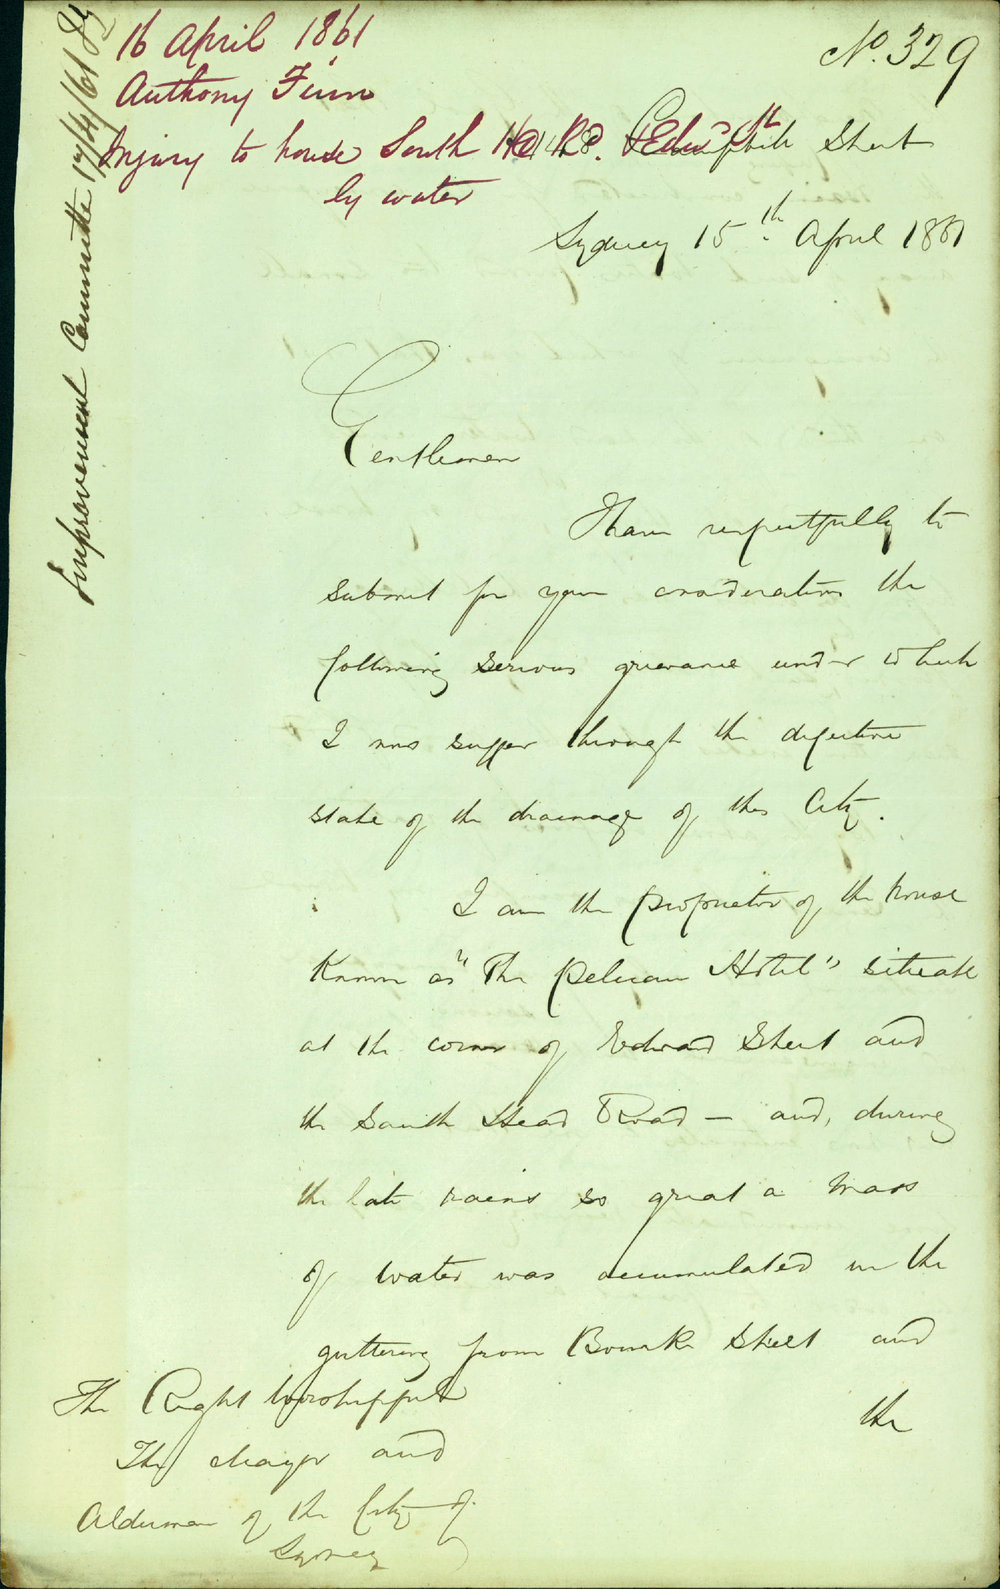 16 April 1861
Anthony Finn
Injury to house South Hd Rd. Edwd St
by water
No. 329
Street
Sydney 15th April 1861
Improvement Committee 17/4/61
Gentlemen
I have respectfully to
submit for your consideration the
following serious grievance under which
I now suffer through the defective
state of the drainage of this City.
I am the proprietor of the house
Known as "The Pelican Hotel" situate
at the corner of Edward Street and
the South Head Road — and, during
the late rains so great a mass
of water was accumulated in the
guttering from Bourke Street and
the
The Right Worshipful
The Mayor and
Aldermen of the City of
Sydney